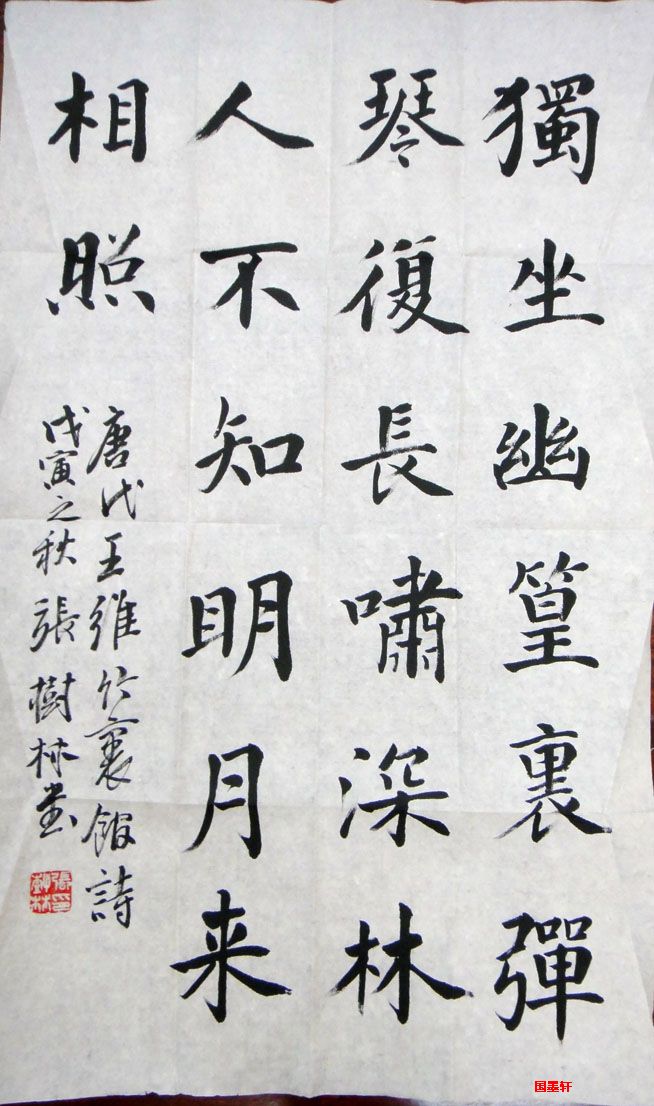 獨坐幽篁裏彈
琴復長嘯深林
人不知明月来
相照
唐代王維竹裏館詩
戊寅之秋張樹林書
張樹林印
国墨轩